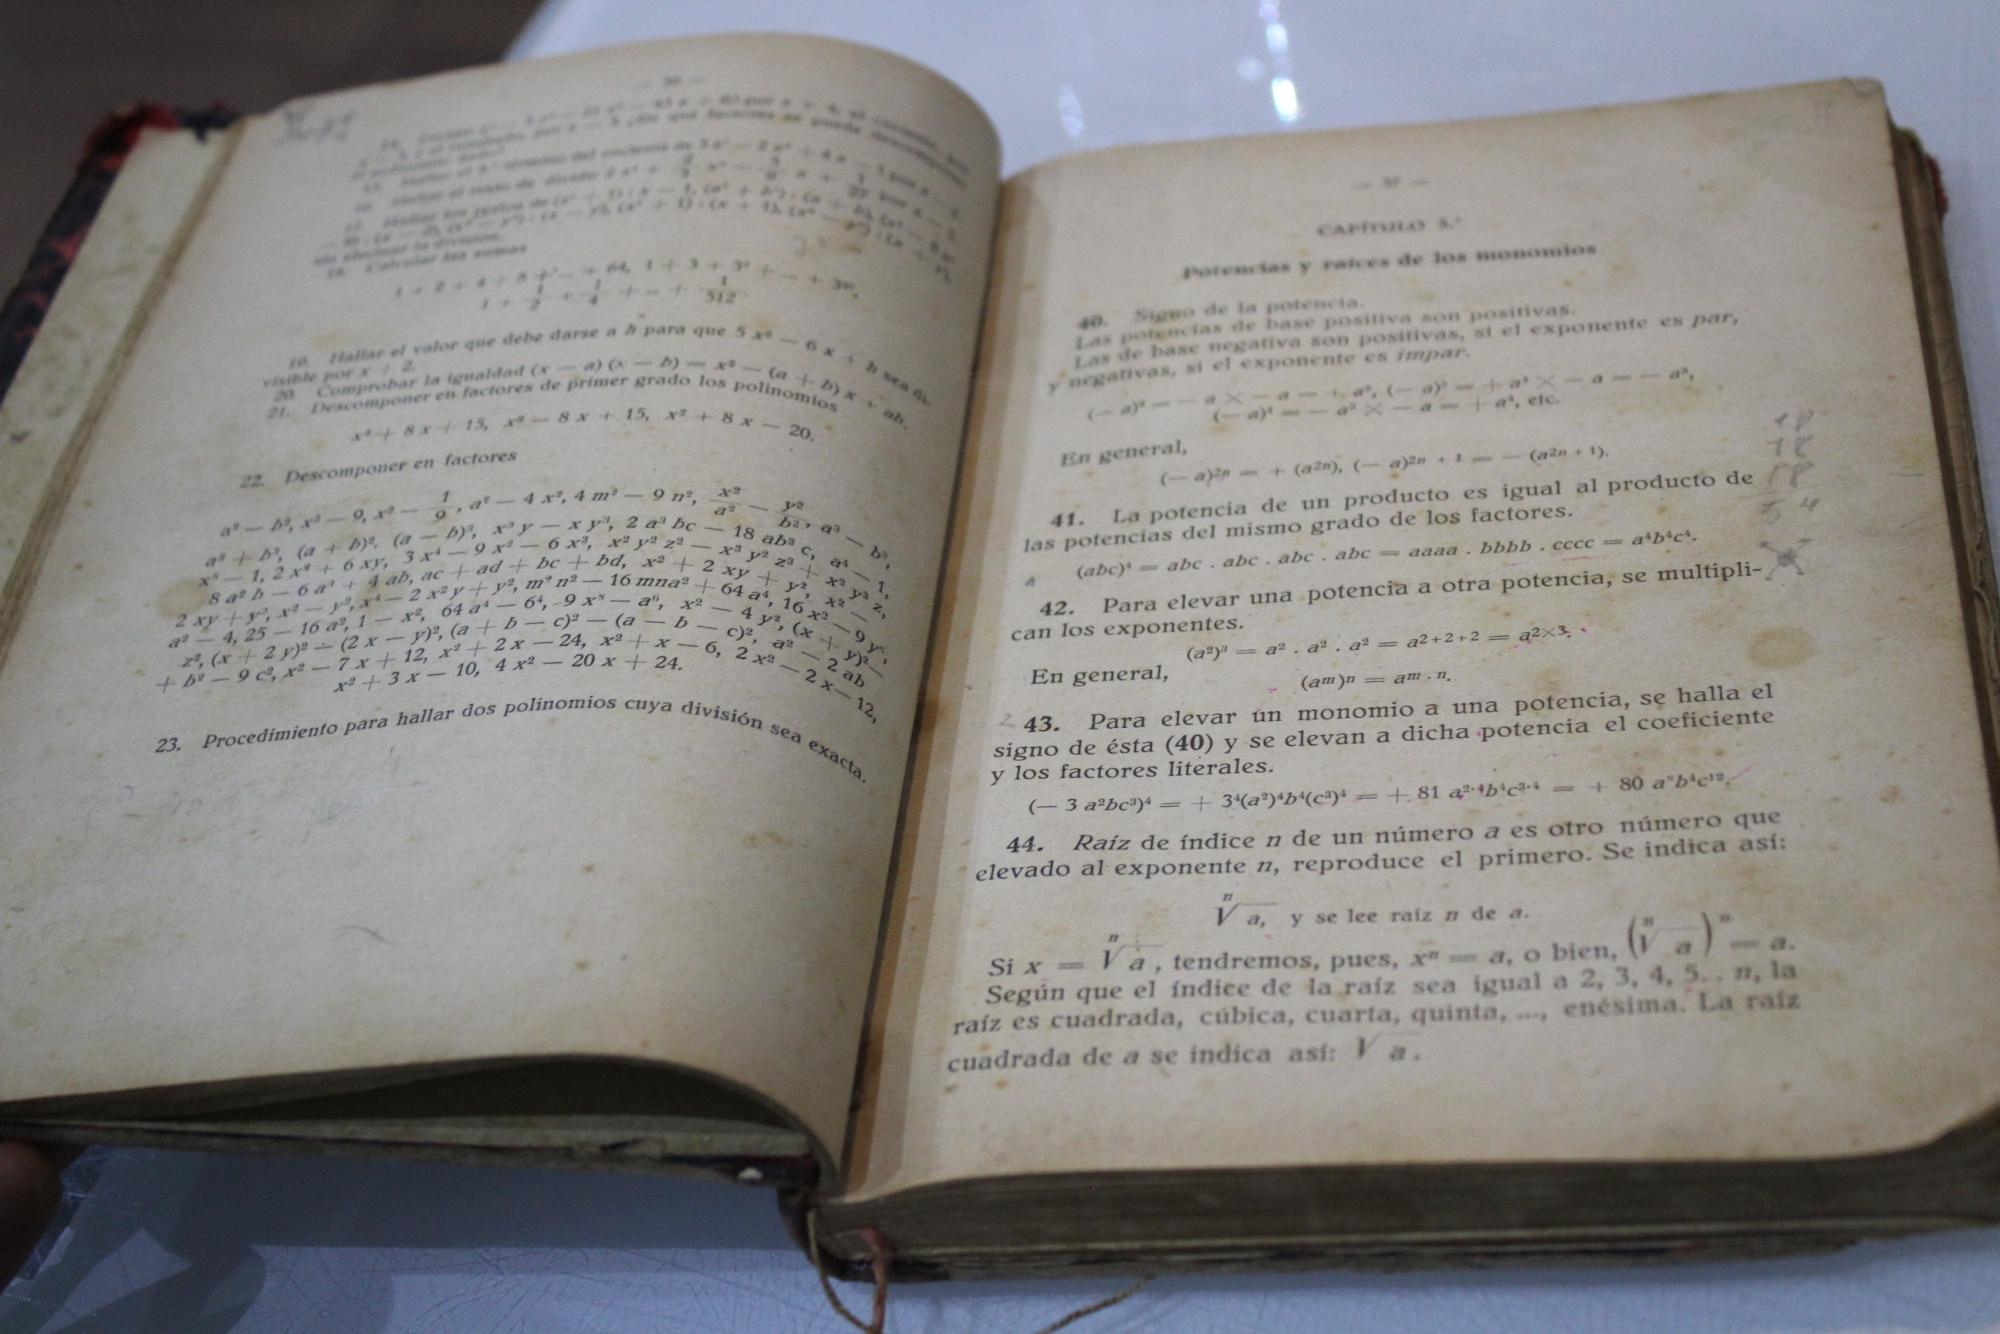 — 36 —
término del cociente de
Hallar el resto de dividir
Hallar los restos de
sin efectuar la división.
18. Calcular las sumas
1 + 2 + 4 + 8 + ... + 64, 1 + 3 + 3² + ... +
1 + 1/2 + 1/4 + ... + 1/512
19. Hallar el valor que debe darse a h para que 5 x² — 6 x + h sea di-
visible por x + 2.
20. Comprobar la igualdad (x — a) (x — b) = x² — (a + b) x + ab.
21. Descomponer en factores de primer grado los polinomios
x² + 8 x + 15, x² — 8 x + 15, x² + 8 x — 20.
22. Descomponer en factores
a² — b², x² — 9, x² — 1/9, a² — 4 x², 4 m² — 9 n², x²/a² — y²/b², a³ — b³,
a³ + b³, (a + b)², (a — b)³, x³ y — x y³, 2 a³ bc — 18 ab³ c, a⁴ — 1,
x⁸ — 1, 2 x² + 6 xy, 3 x⁴ — 9 x² — 6 x³, x² y² z² — x³ y² z³ + x² y³ z,
8 a² b — 6 a³ + 4 ab, ac + ad + bc + bd, x² + 2 xy + y², x² —
2 xy + y², x² — y², x⁴ — 2 x² y + y², m² n² — 16 mna² + 64 a⁴, 16 x² — 9 y²,
a² — 4, 25 — 16 a², 1 — x², 64 a⁴ — 6⁴, 9 x⁸ — a⁶, x² — 4 y², (x + y)² —
z², (x + 2 y)² — (2 x — y)², (a + b — c)² — (a — b — c)², a² — 2 ab
+ b² — 9 c², x² — 7 x + 12, x² + 2 x — 24, x² + x — 6, 2 x² — 2 x — 12,
x² + 3 x — 10, 4 x² — 20 x + 24.
23. Procedimiento para hallar dos polinomios cuya división sea exacta.
— 37 —
CAPÍTULO 5.°
Potencias y raíces de los monomios
40. Signo de la potencia.
Las potencias de base positiva son positivas.
Las de base negativa son positivas, si el exponente es par,
y negativas, si el exponente es impar.
(— a)² = — a × — a = + a², (— a)³ = + a² × — a = — a³,
(— a)⁴ = — a³ × — a = + a⁴, etc.
En general,
(— a)2n = + (a2n), (— a)2n + 1 = — (a2n + 1).
18
18
18
54
41. La potencia de un producto es igual al producto de
las potencias del mismo grado de los factores.
(abc)⁴ = abc . abc . abc . abc = aaaa . bbbb . cccc = a⁴b⁴c⁴.
42. Para elevar una potencia a otra potencia, se multipli-
can los exponentes.
(a²)³ = a² . a² . a² = a2+2+2 = a2×3.
En general,
(am)n = am . n.
43. Para elevar un monomio a una potencia, se halla el
signo de ésta (40) y se elevan a dicha potencia el coeficiente
y los factores literales.
(— 3 a²bc³)⁴ = + 3⁴(a²)⁴b⁴(c³)⁴ = + 81 a²·⁴b⁴c³·⁴ = + 80 a⁸b⁴c¹².
44. Raíz de índice n de un número a es otro número que
elevado al exponente n, reproduce el primero. Se indica así:
ⁿ√a, y se lee raíz n de a.
Si x = ⁿ√a, tendremos, pues, xⁿ = a, o bien, (ⁿ√a)ⁿ = a.
Según que el índice de la raíz sea igual a 2, 3, 4, 5. . n, la
raíz es cuadrada, cúbica, cuarta, quinta, ..., enésima. La raíz
cuadrada de a se indica así: √a.